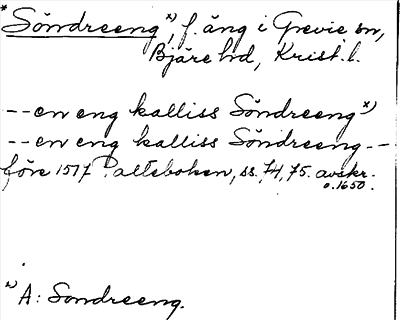 * Söndreeng *), f. äng i Grevie sn,
Bjäre hd, Krist. l.
-- en eng kalliss Söndreeng *)
-- en eng kalliss Söndreeng --
före 1517 Palteboken, ss. 74, 75. avskr.
o. 1650.
*) A: Sondreeng.